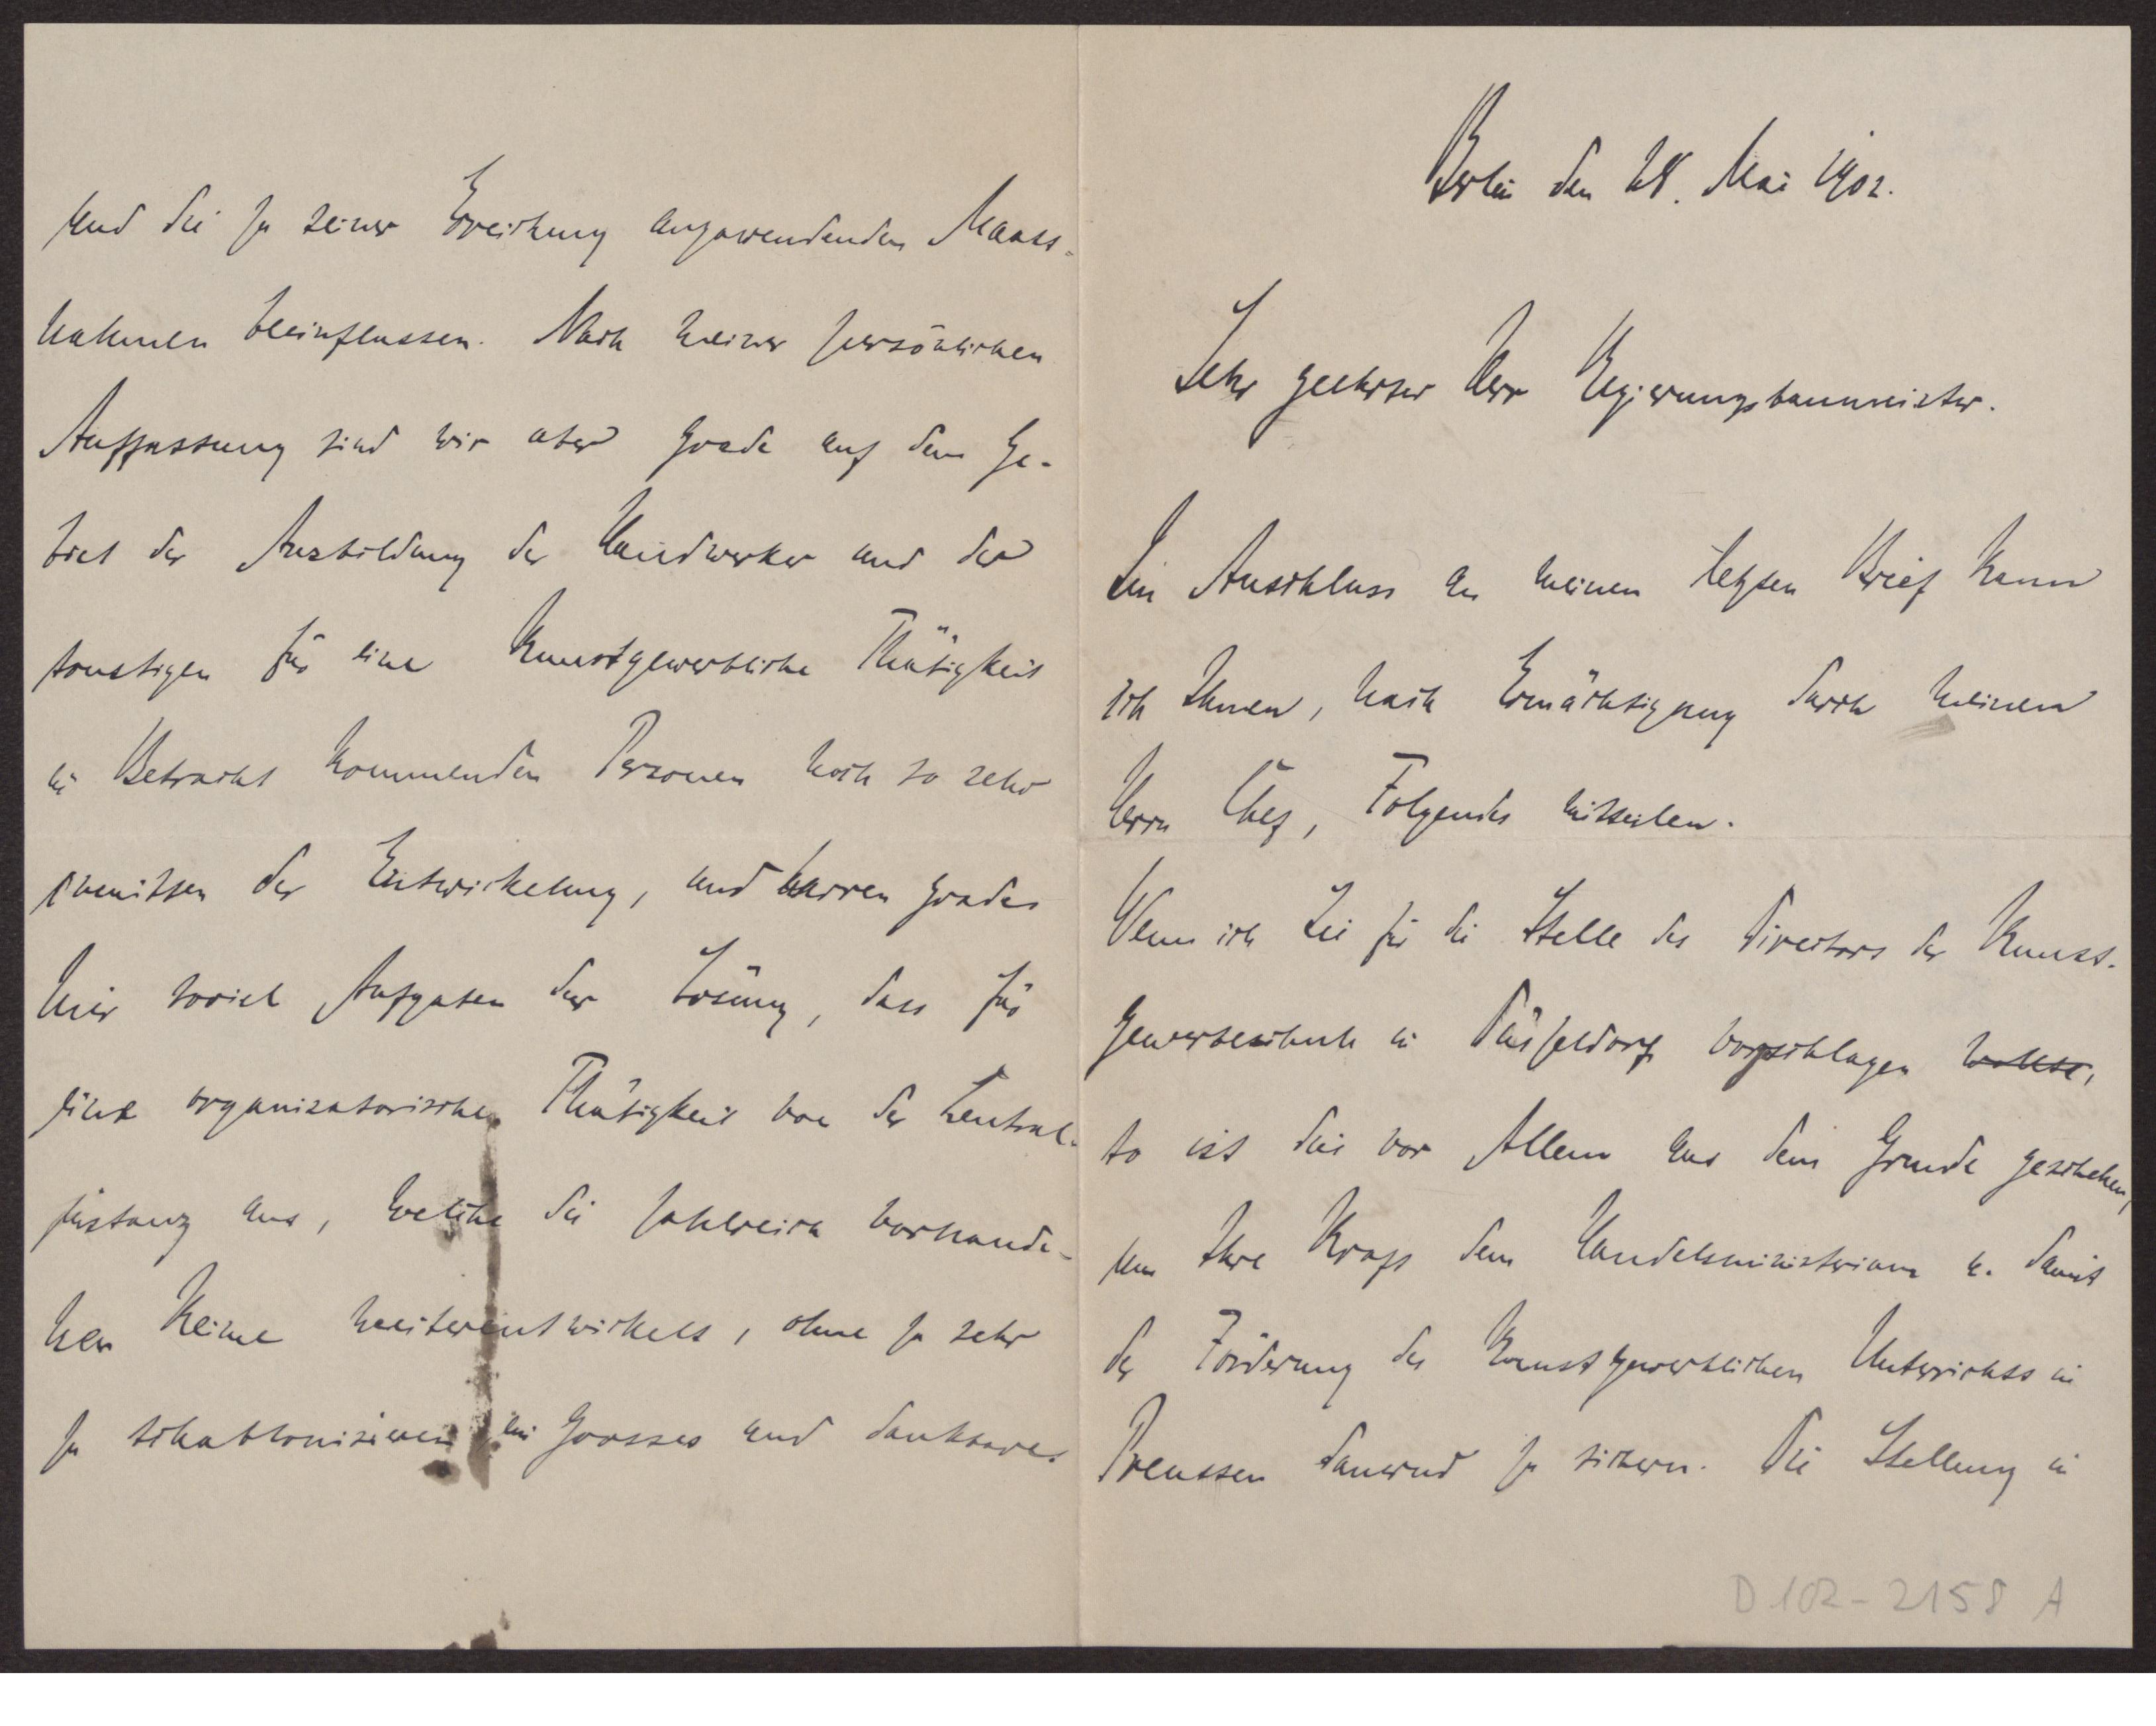 Berlin den 28. Mai 1902.
Sehr geehrter Herr Regierungsbaumeister.
Im Anschluss an meinen letzten Brief kann
ich Ihnen, nach Ermächtigung durch meinen
Herrn Chef, Folgendes mitteilen.
Wenn ich Sie für die Stelle des Directors der Kunst-
gewerbeschule in Düsseldorf vorschlagen wollte,
so ist dies vor Allem aus dem Grunde geschehen,
um Ihre Kraft dem Handelsministerium u. damit
der Förderung des kunstgewerblichen Unterrichts in
Preussen dauernd zu sichern. Die Stellung in
D 102-2158 A
und die zu seiner Erreichung anzuwendenden Maass-
nahmen beeinflussen. Nach meiner persönlichen
Auffassung sind wir aber grade auf dem Ge-
biet der Ausbildung der Handwerker und der
sonstigen für eine kunstgewerbliche Thätigkeit
in Betracht kommenden Personen noch so sehr
inmitten der Entwickelung, und harren grade
hier soviel Aufgaben der Lösung, dass für
eine organisatorische Thätigkeit von der Central-
instanz aus, welche die zahlreich vorhande-
nen Keime weiterentwickelt, ohne zu sehr
zu schablonisieren ein grosses und dankbares